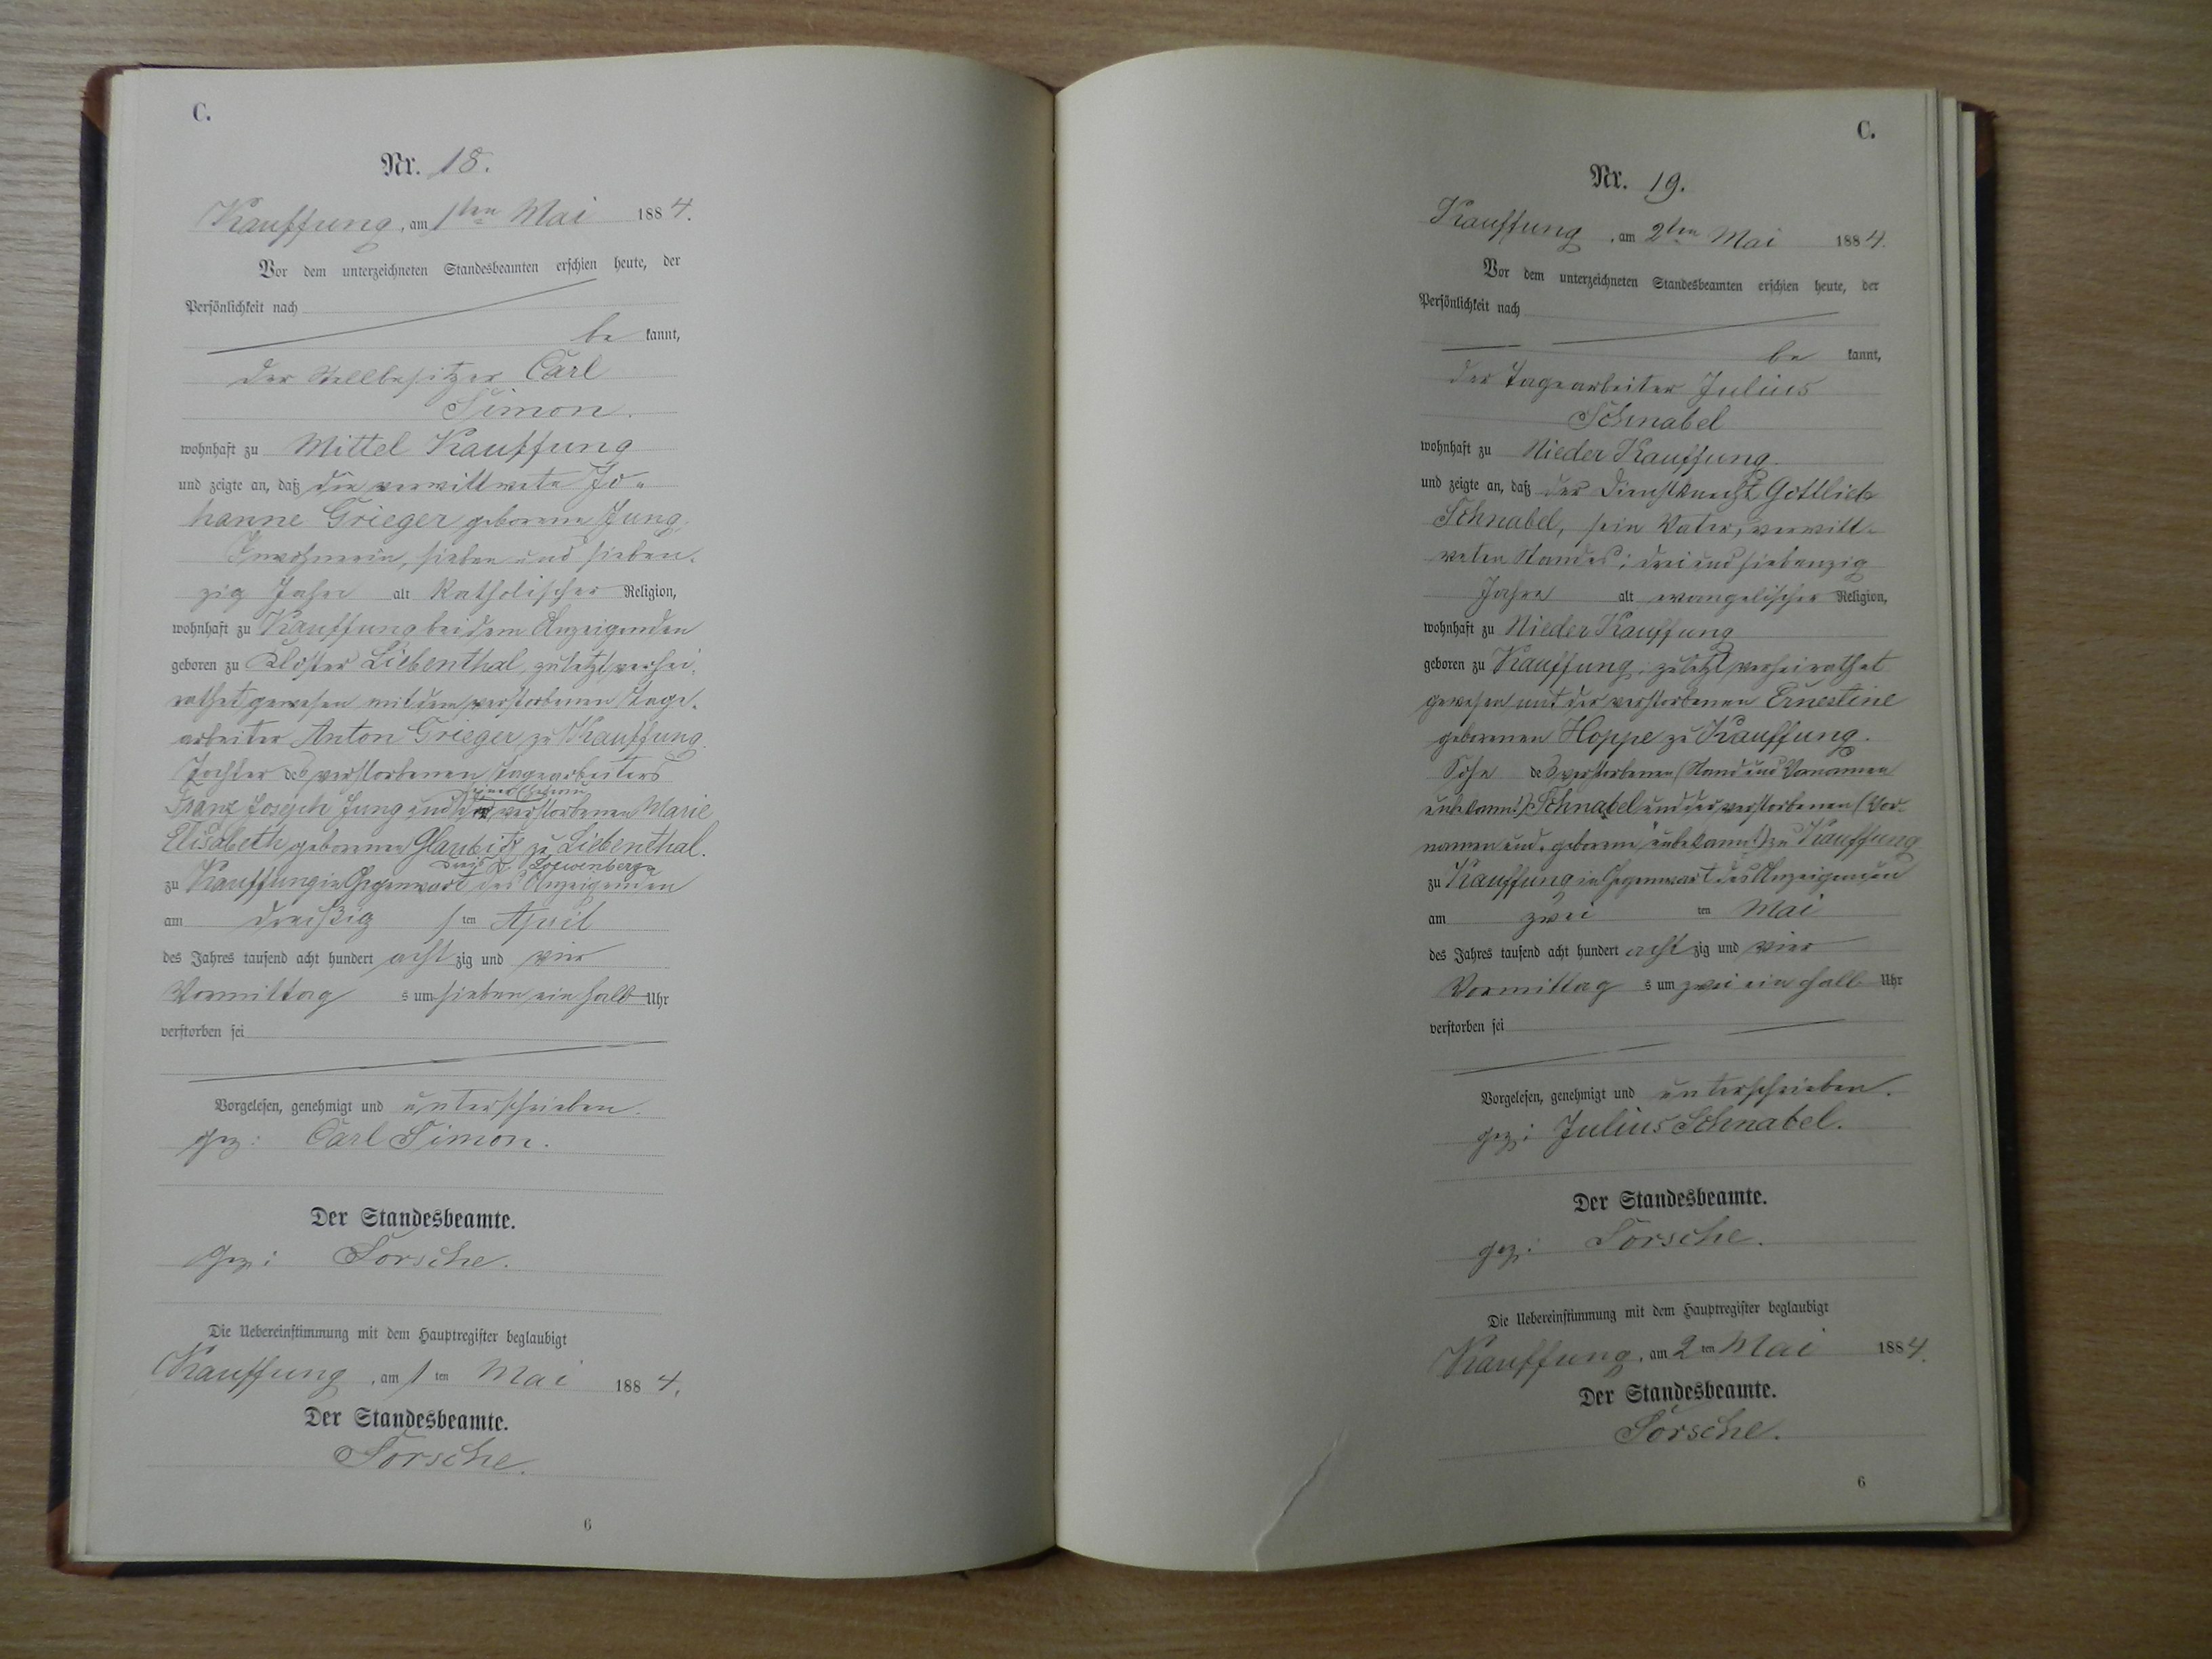 C.
Nr. 18.
Kauffung, am 1ten Mai 1884.
Vor dem unterzeichneten Standesbeamten erschien heute, der
Persönlichkeit nach
be kannt,
der Stellbesitzer Carl
Simon.
wohnhaft zu Mittel Kauffung
und zeigte an, daß die verwittwete Jo-
hanne Grieger geborene Jung,
Inwohnerin, sieben und sieben-
zig Jahre alt katholischer Religion,
wohnhaft zu Kauffung bei dem Anzeigenden
geboren zu Kloster Liebenthal, zuletzt verhei-
rathet gewesen mit dem verstorbenen Tage-
arbeiter Anton Grieger zu Kauffung.
Tochter des verstorbenen Tagearbeiters
Franz Joseph Jung und verstorbenen Marie
Elisabeth geborenen Glaubitz zu Liebenthal.
Kreis Loewenberg
zu Kauffung in Gegenwart des Anzeigenden
am dreißig sten April
des Jahres tausend acht hundert acht zig und vier
Vormittag s um sieben ein halb Uhr
verstorben sei
Vorgelesen, genehmigt und unterschrieben.
gez: Carl Simon.
Der Standesbeamte.
gez: Sorsche.
Die Uebereinstimmung mit dem Hauptregister beglaubigt
Kauffung, am 1 ten Mai 1884.
Der Standesbeamte.
Sorsche.
6
C.
Nr. 19.
Kauffung, am 2ten Mai 1884.
Vor dem unterzeichneten Standesbeamten erschien heute, der
Persönlichkeit nach
be kannt,
der Tagearbeiter Julius
Schnabel
wohnhaft zu Nieder Kauffung.
und zeigte an, daß der Dienstknecht Gottlieb
Schnabel, sein Vater, verwitt-
weten Standes; drei und siebenzig
Jahre alt evangelischer Religion,
wohnhaft zu Nieder Kauffung
geboren zu Kauffung, zuletzt verheirathet
gewesen mit der verstorbenen Ernestine
geborenen Hoppe zu Kauffung.
Sohn des verstorbenen (Stand und Vornamen
unbekannt) Schnabel und der verstorbenen (Vor-
namen und geborene unbekannt) zu Kauffung
zu Kauffung in Gegenwart des Anzeigenden
am zwei ten Mai
des Jahres tausend acht hundert acht zig und vier
Vormittag s um zwei ein halb Uhr
verstorben sei
Vorgelesen, genehmigt und unterschrieben.
gez: Julius Schnabel.
Der Standesbeamte.
gez: Sorsche.
Die Uebereinstimmung mit dem Hauptregister beglaubigt
Kauffung, am 2 ten Mai 1884.
Der Standesbeamte.
Sorsche.
6